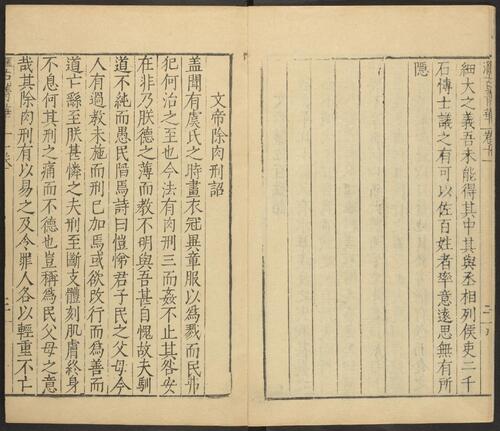 細大之義吾未能得其中其與丞相列侯吏二千
石博士議之有可以佐百姓者率意遠思無有所
隱
文帝除肉刑詔
蓋聞有虞氏之時畫衣冠異章服以爲戮而民弗
犯何治之至也今法有肉刑三而姦不止其咎安
在非乃朕德之薄而教不明與吾甚自愧故夫馴
道不純而愚民陷焉詩曰愷悌君子民之父母今
人有過教未施而刑已加焉或欲改行而爲善而
道亡繇至朕甚憐之夫刑至斷支體刻肌膚終身
不息何其刑之痛而不德也豈稱爲民父母之意
哉其除肉刑有以易之及令罪人各以輕重不亡